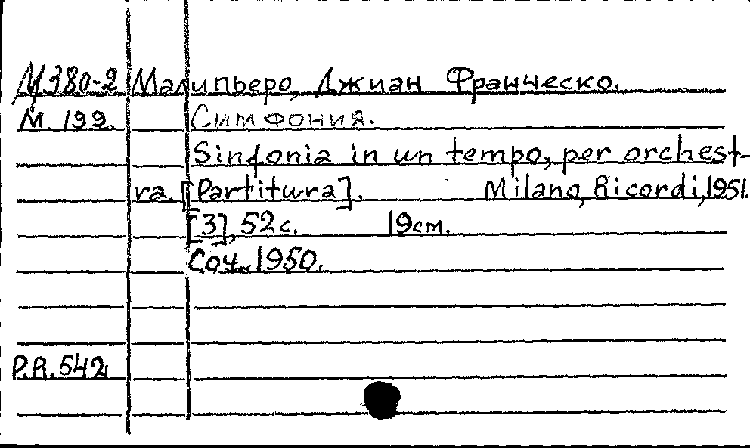 М380-2 Малипьеро, Джиан Франческо.
М.199. Симфония.
Sinfonia in un tempo, per orchest-
ra. [Partitura]. Milano, Ricordi, 1951.
[3], 52 с. 19см.
Соч. 1950.
P.R.542